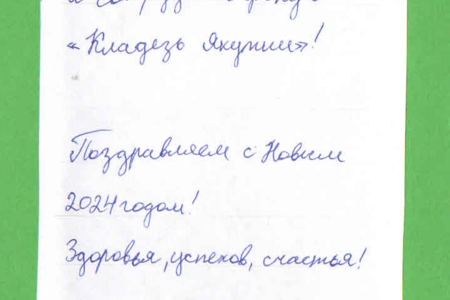 «Кладезь Якутии»!
Поздравляем с Новым
2024 годом!
Здоровья, успехов, счастья!